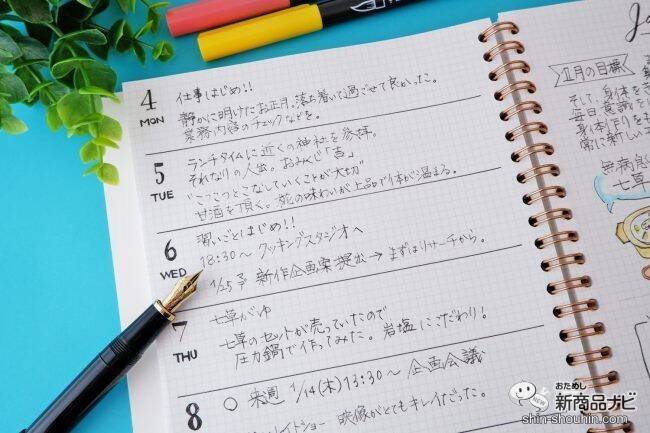 4
MON
仕事はじめ!!
静かに明けたお正月。落ち着いて過ごせて良かった。
業務内容のチェックなどを。
5
TUE
ランチタイムに近くの神社を参拝。
それなりの人出。おみくじ「吉」
"こつこつとこなしていくことが大切"
甘酒を頂く。糀の味わいが上品で体が温まる。
6
WED
習いごとはじめ!!
18:30～ クッキングスタジオへ
1/25〆 新作企画案提出→まずはリサーチから。
7
THU
七草がゆ
七草のセットが売っていたので
圧力鍋で作ってみた。岩塩にこだわり!
8
○ 来週 1/14(木)13:30～ 企画会議
イドショー 映像がとてもキレイだった。
正月の目標
そして、身体を
毎日意識を
身体作りを
常に新しい
無病息
七草
おためし
新商品ナビ
shin-shouhin.com